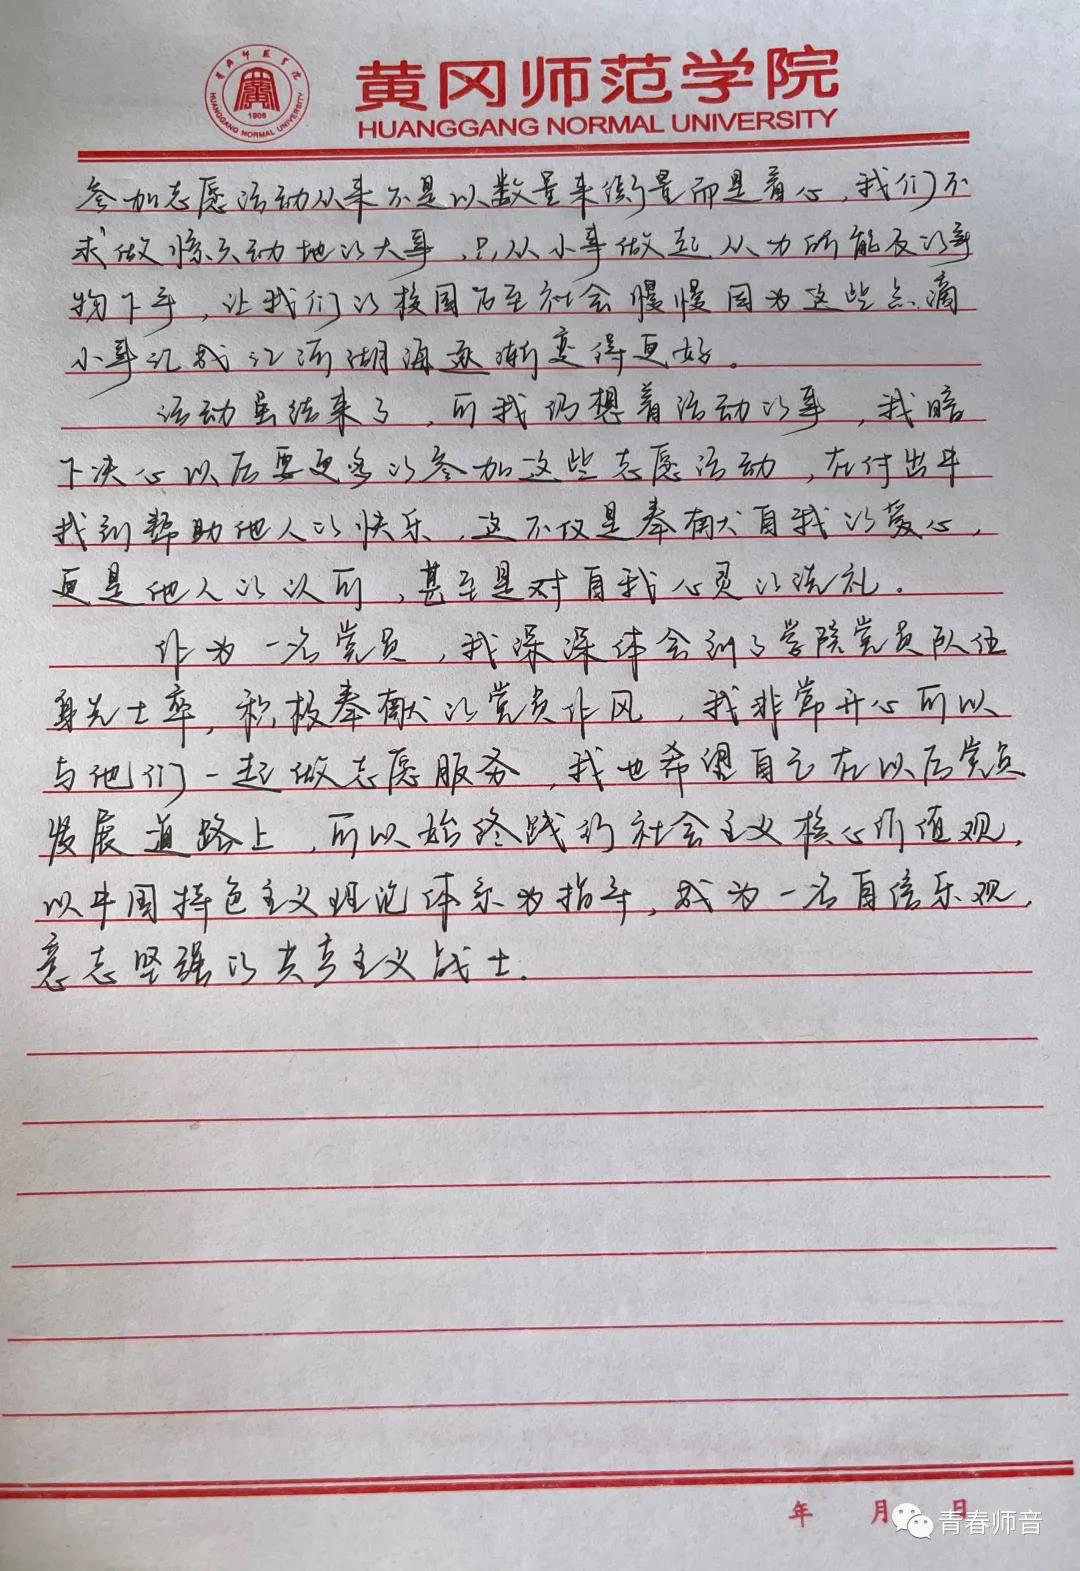 黄冈师范学院
HUANGGANG NORMAL UNIVERSITY
黄冈师范学院
1905
HUANGGANG NORMAL UNIVERSITY
参加志愿活动从来不是以数量来衡量而是看心，我们不
求做惊天动地的大事，只从小事做起从力所能及的事
物下手，让我们的校园乃至社会慢慢因为这些点滴
小事汇成江河湖海逐渐变得更好。
活动虽结束了，可我仍想着活动的事，我暗
下决心以后要更多的参加这些志愿活动，在付出中
找到帮助他人的快乐，这不仅是奉献自我的爱心，
更是他人的认可，甚至是对自我心灵的洗礼。
作为一名党员，我深深体会到了学院党员队伍
身先士卒，积极奉献的党员作风，我非常开心可以
与他们一起做志愿服务，我也希望自己在以后党员
发展道路上，可以始终践行社会主义核心价值观，
以中国特色主义理论体系为指导，成为一名自信乐观，
意志坚强的共产主义战士.
年 月 日
青春师音